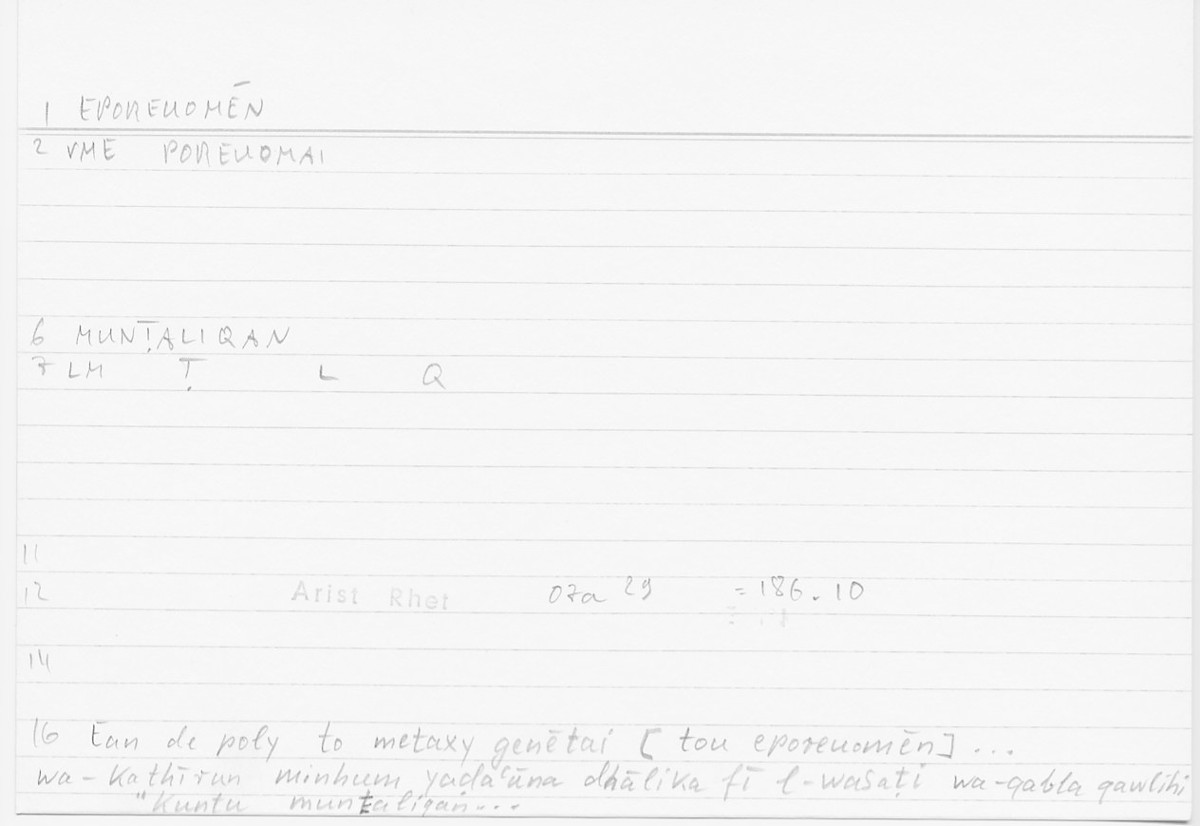 1 EPOREUOMĒN
2 VME POREUOMAI
6 MUNṬALIQAN
7 LM Ṭ L Q
11
12 Arist Rhet 07a 29 = 186.10
14
16 Ean de poly to metaxy genētai [tou eporeuomēn] ...
wa-Kathīrun minhum yadaʿūna dhālika fī l-wasaṭi wa-qabla qawlihi
"Kuntu munṭaliqan...